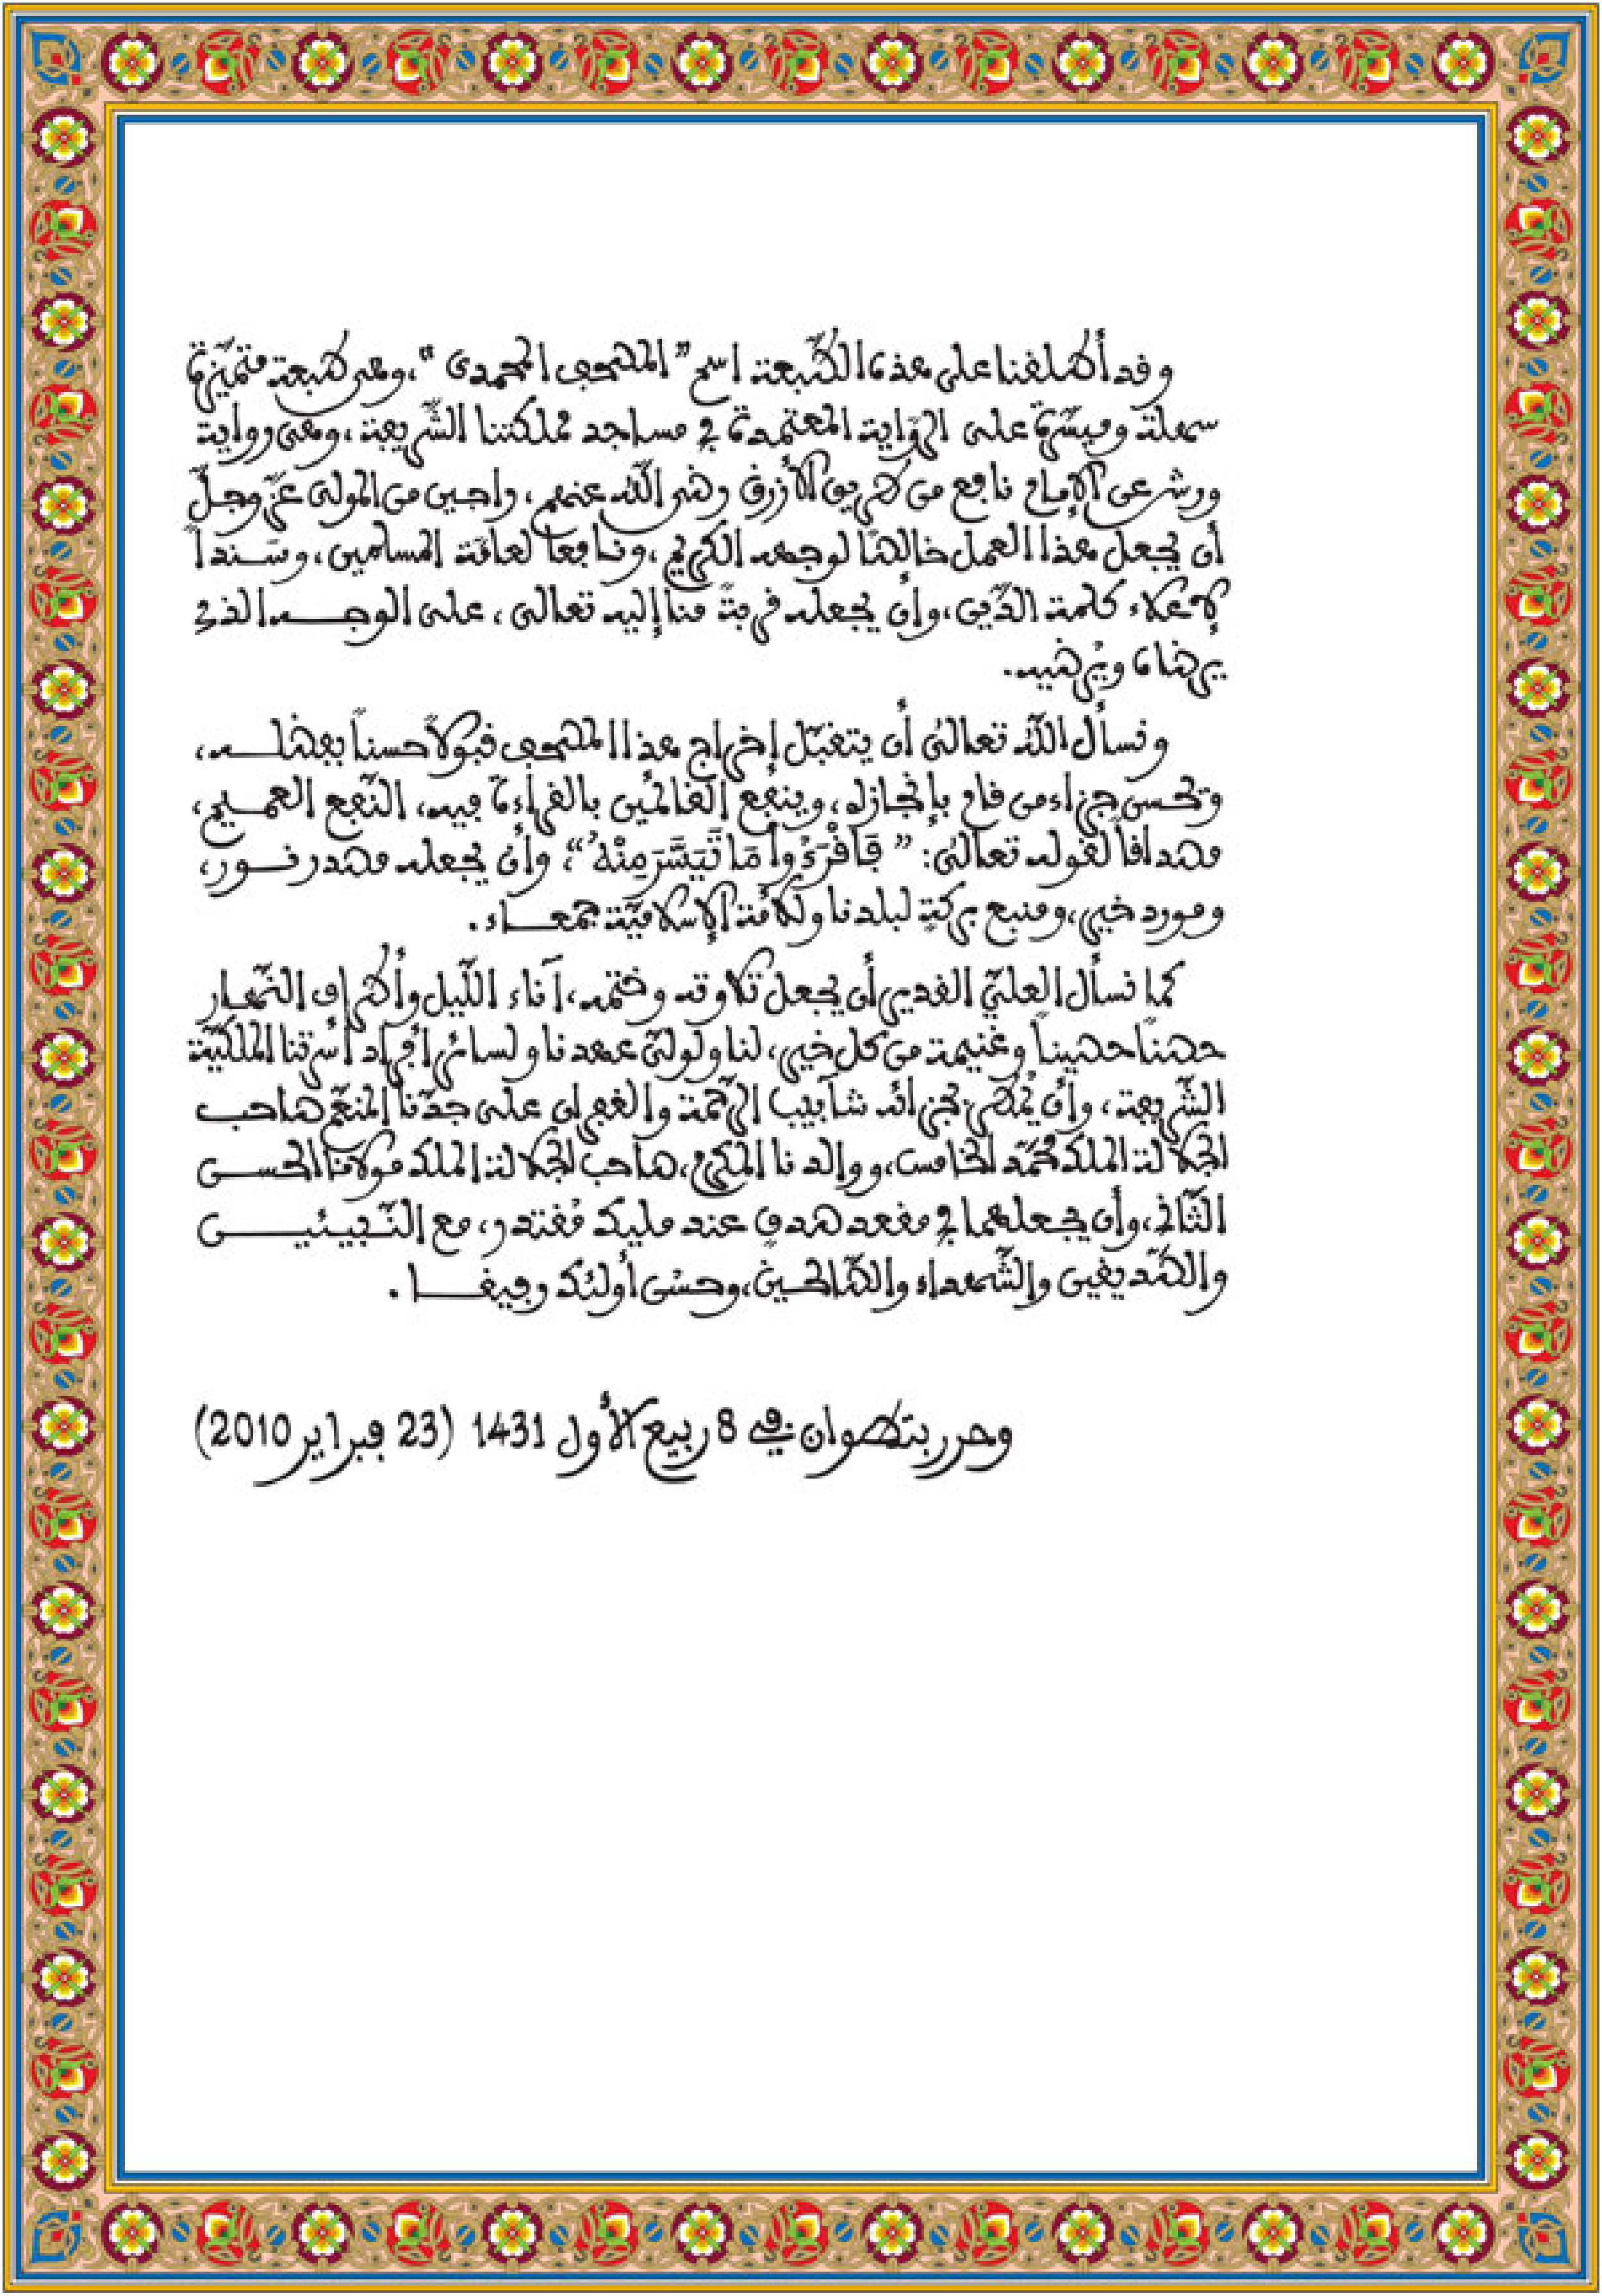 وقد أطلقنا على هذه الطّبعة اسم "المصحف المحمدي"، وهي طبعة متميّزة
سهلة وميسّرة على الرّواية المعتمدة في مساجد مملكتنا الشّريفة، وهي رواية
ورش عن الإمام نافع من طريق الأزرق رضي اللّه عنهم، راجين من المولى عزّ وجلّ
أن يجعل هذا العمل خالصًا لوجهه الكريم، ونافعا لعامّة المسلمين، وسنداً
لإعلاء كلمة الدّين، وأن يجعله قربةً منا إليه تعالى، على الوجه الذي
يرضاه ويُرضيه.
ونسأل اللّه تعالى أن يتقبّل إخراج هذا المصحف قبولاً حسناً بفضله،
ويحسن جزاء من قام بإنجازه، وينفع القائمين بالقراءة فيه، النّفع العميم،
مصداقاً لقوله تعالى: "فَاقْرَءُوا مَا تَيَسَّرَ مِنْهُ"، وأن يجعله مصدر نور،
ومورد خير، ومنبع بركةٍ لبلدنا وللأمّة الإسلاميّة جمعاء.
كما نسأل العليّ القدير أن يجعل تلاوته وختمه، آناء اللّيل وأطراف النّهار
حصنًا حصيناً وغنيمة من كل خير، لنا ولوليّ عهدنا ولسائر أفراد أسرتنا الملكيّة
الشّريفة، وأن يُمطر بجزائه شآبيب الرّحمة والغفران على جدّنا المنعّم صاحب
الجلالة الملك محمّد الخامس، ووالدنا المكرم، صاحب الجلالة الملك مولانا الحسن
الثّاني، وأن يجعلهما في مقعد صدقٍ عند مليك مُقتدر، مع النّبيئين
والصّديقين والشّهداء والصّالحين، وحسُن أولئك رفيقا.
وحرر بتطوان في 8 ربيع الأول 1431 (23 فبراير 2010)